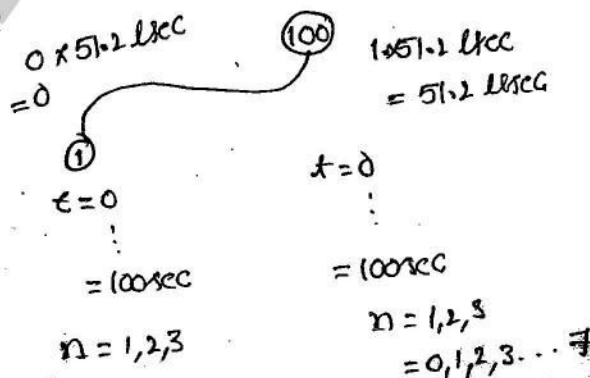 0 × 51.2 lsec
= 0
100
1×51.2 lsec
= 51.2 llsec
1
t = 0
⋮
= 100sec
n = 1,2,3
t = 0
⋮
= 100sec
n = 1,2,3
= 0,1,2,3...